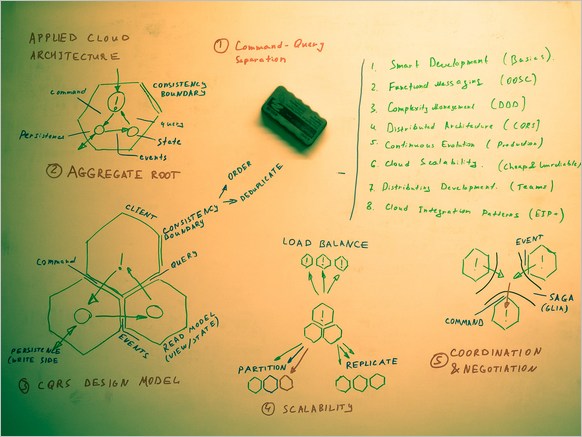 APPLIED CLOUD
ARCHITECTURE
1 Command-Query
Separation
command
CONSISTENCY
BOUNDARY
query
Persistence
State
events
2 AGGREGATE ROOT
1. Smart Development (Basics).
2. Functional Messaging (OOSC)
3. Complexity Management (DDD)
4 Distributed Architecture (CQRS)
5 Continuous Evolution (Production)
6 Cloud Scalability. (Cheap & Unreliable)
7. Distributing Development. (Teams)
8. Cloud Integration Patterns (EIP+)
ORDER
DEDUPLICATE
CLIENT
CONSISTENCY
BOUNDARY
Command
QUERY
EVENTS
READ MODEL
(VIEW/STATE)
PERSISTENCE
(WRITE SIDE
3 CQRS DESIGN MODEL
LOAD BALANCE
! ! !
PARTITION
REPLICATE
4 SCALABILITY
EVENT
SAGA
(GLIA)
COMMAND
5 COORDINATION
& NEGOTIATION